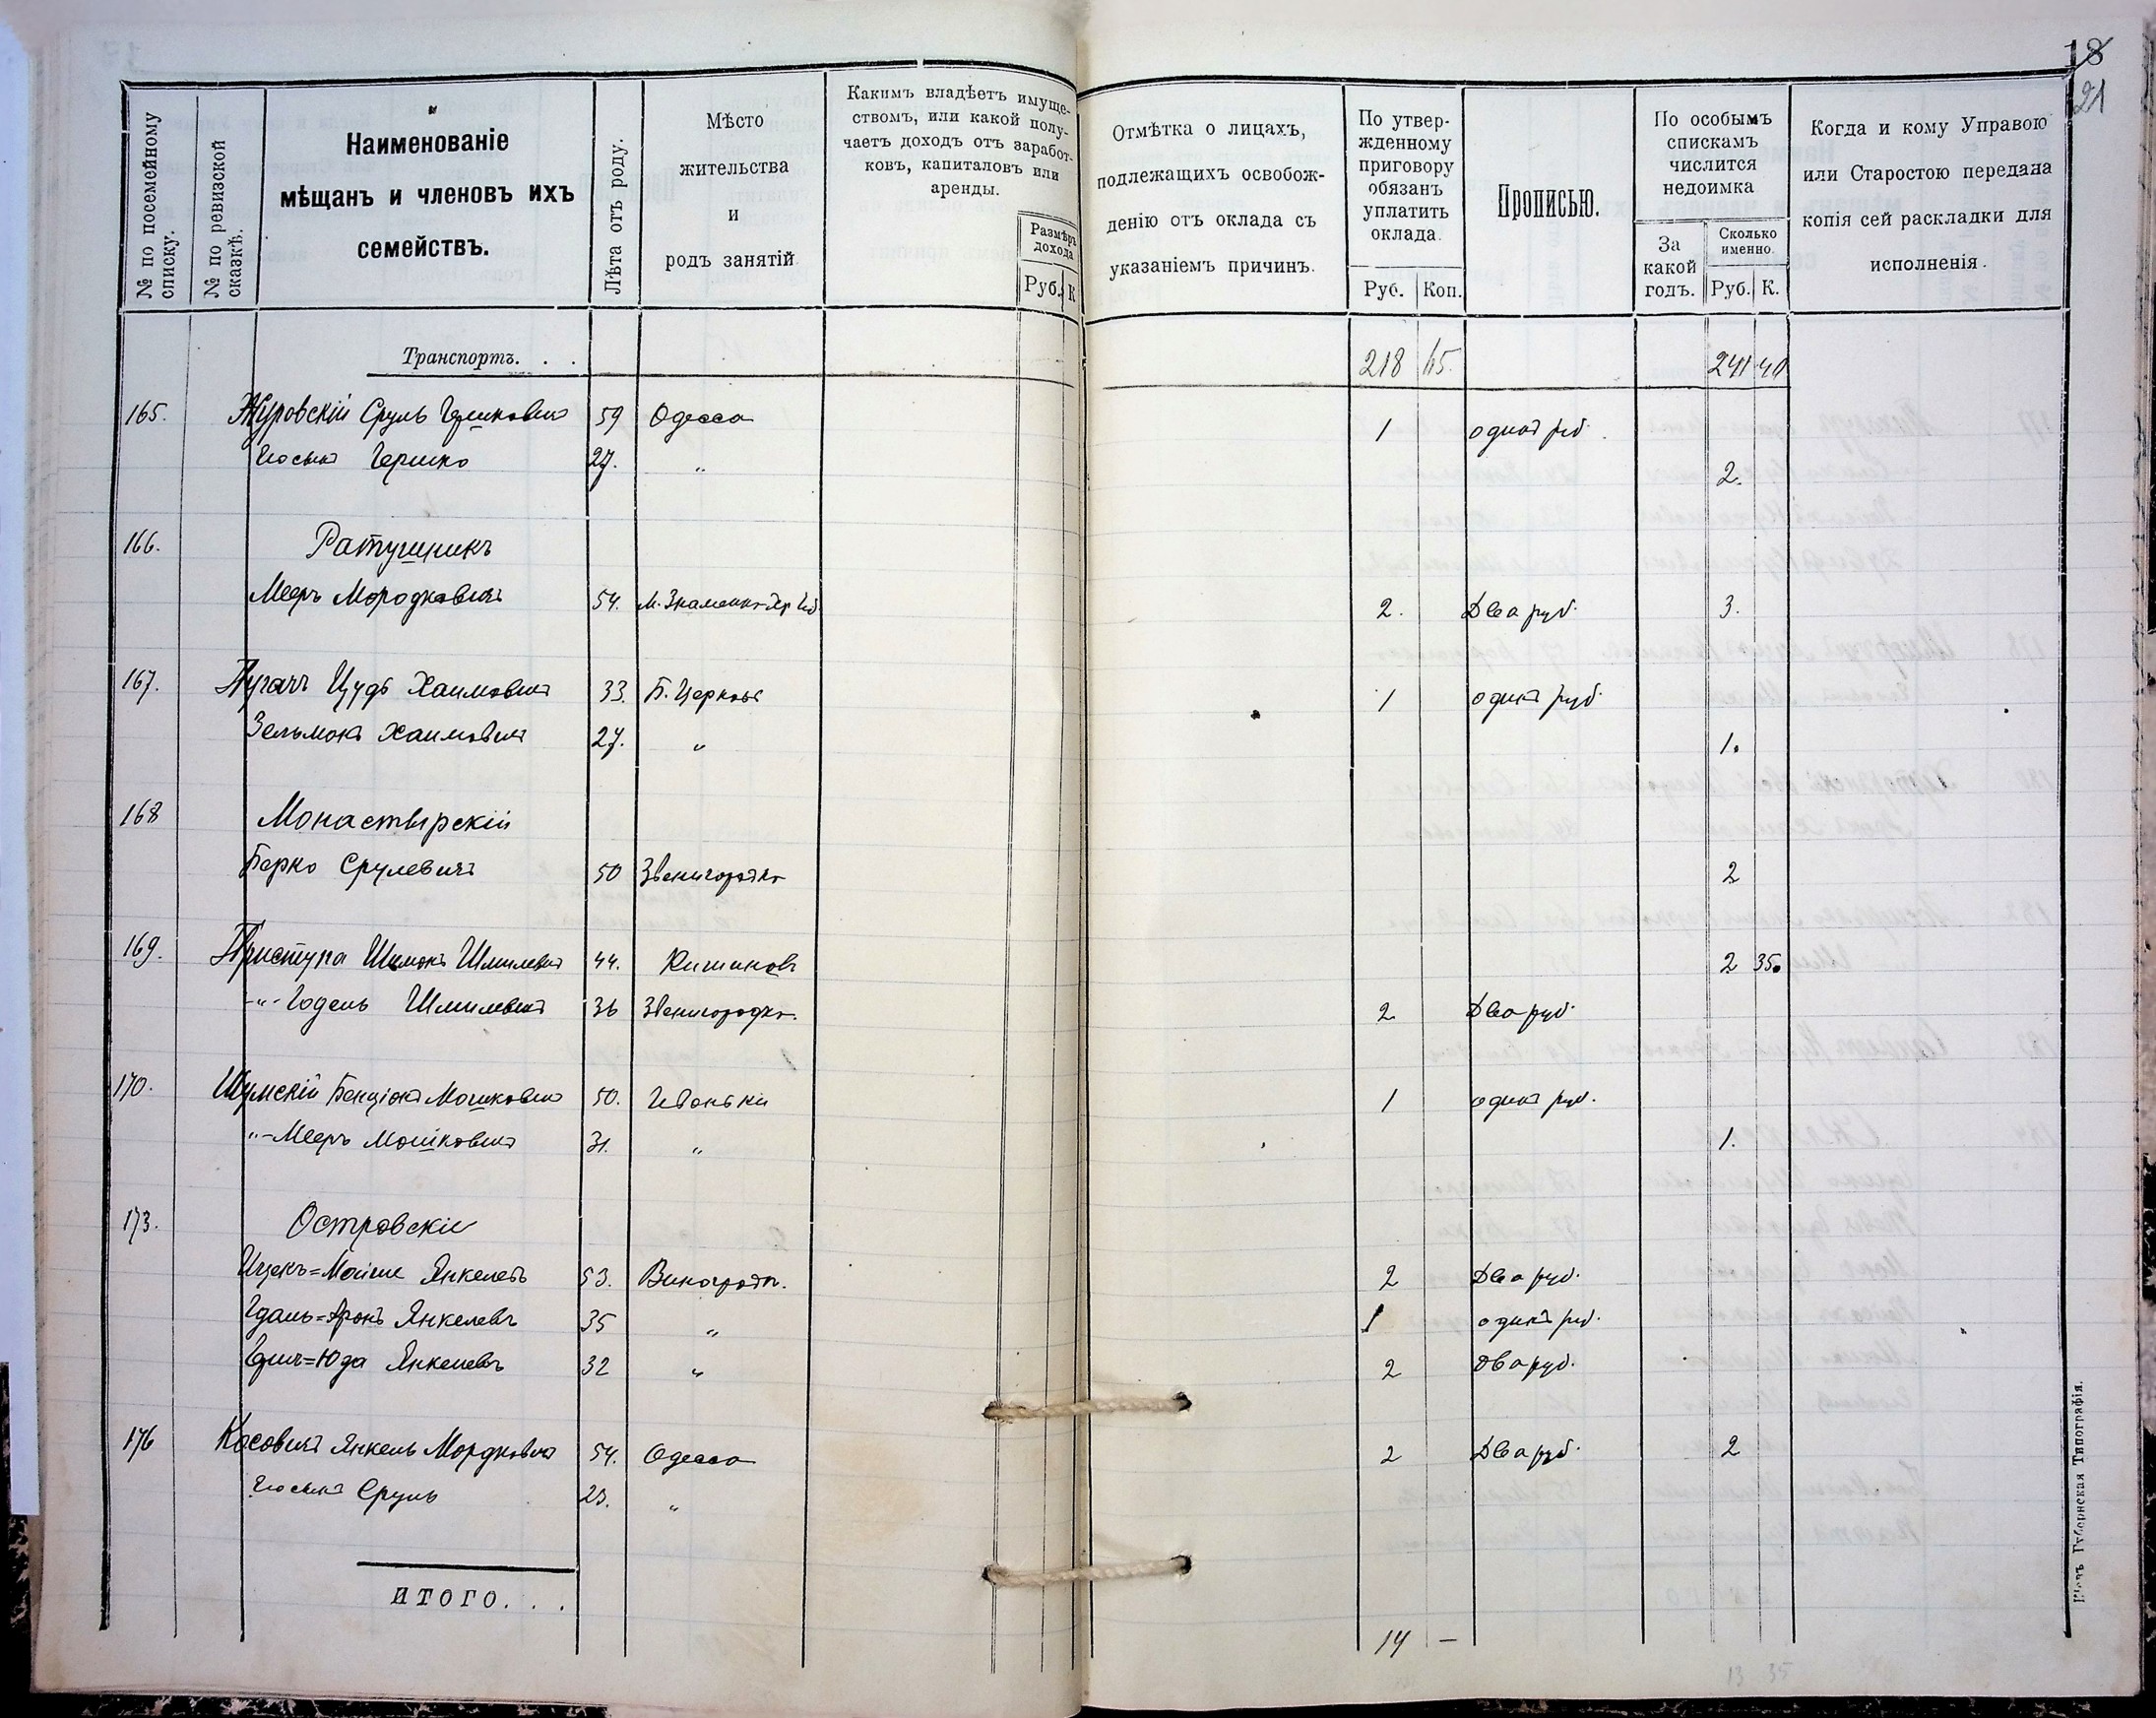 18
21
№ по посемейному списку.
№ по ревизской сказкѣ.
Наименованіе
мѣщанъ и членовъ ихъ
семействъ.
Лѣта отъ роду.
Мѣсто
жительства
и
родъ занятій
Какимъ владѣетъ имуще-
ствомъ, или какой полу-
чаетъ доходъ отъ заработ-
ковъ, капиталовъ или
аренды.
Размѣръ
дохода
Руб. К
Отмѣтка о лицахъ,
подлежащихъ освобож-
денію отъ оклада съ
указаніемъ причинъ.
По утвер-
жденному
приговору
обязанъ
уплатить
оклада.
Руб. Коп.
Прописью.
По особымъ
спискамъ
числится
недоимка
За
какой
годъ.
Сколько
именно.
Руб. К.
Когда и кому Управою
или Старостою передана
копія сей раскладки для
исполненія.
Транспортъ. . . 218 65. 241 40
165. Журовскій Сруль Гершковичъ 59 Одесса 1 одинъ руб.
Его сынъ Гершко 27. " 2.
166. Ратушникъ
Мееръ Мордковичъ 54. М. Знаменка 2. Два руб. 3.
167. Пугачъ Цудь Хаимовичъ 33. Б. Церковь 1 одинъ руб.
Зельманъ Хаимовичъ 27. " 1.
168 Монастырскій
Берко Срулевичъ 50 Звенигородка 2
169. Приступа Шимонъ Шмилевичъ 44. Кишиневъ 2 35.
-"- Годель Шмилевичъ 36 Звенигородка. 2 Два руб.
170. Шумскій Бенціонъ Мошковичъ 50. Иваньки 1 одинъ руб.
"- Мееръ Мошковичъ 31. " 1.
173. Островскіе
Ицекъ=Мойше Янкелевъ 53. Виноградъ. 2 Два руб.
Гдаль=Аронъ Янкелевъ 35 " 1 одинъ руб.
Герш=Юда Янкелевъ 32 " 2 Два руб.
176 Косовичъ Янкель Мордковичъ 54. Одесса 2 Два руб. 2
Его сынъ Сруль 23. "
ИТОГО. . . 14 —
13 35
Кіевъ Губернская Типографія.